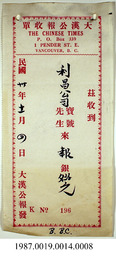 大漢公報收單
THE CHINESE TIMES
P. O. Box 339
1 PENDER ST. E.
VANCOUVER, B. C.
茲收到
利昌公司
寶號
先生
來報銀
民國卅年十一月
日大漢公報發
K No 198
B.B.C.
1987.0019.0014.0008